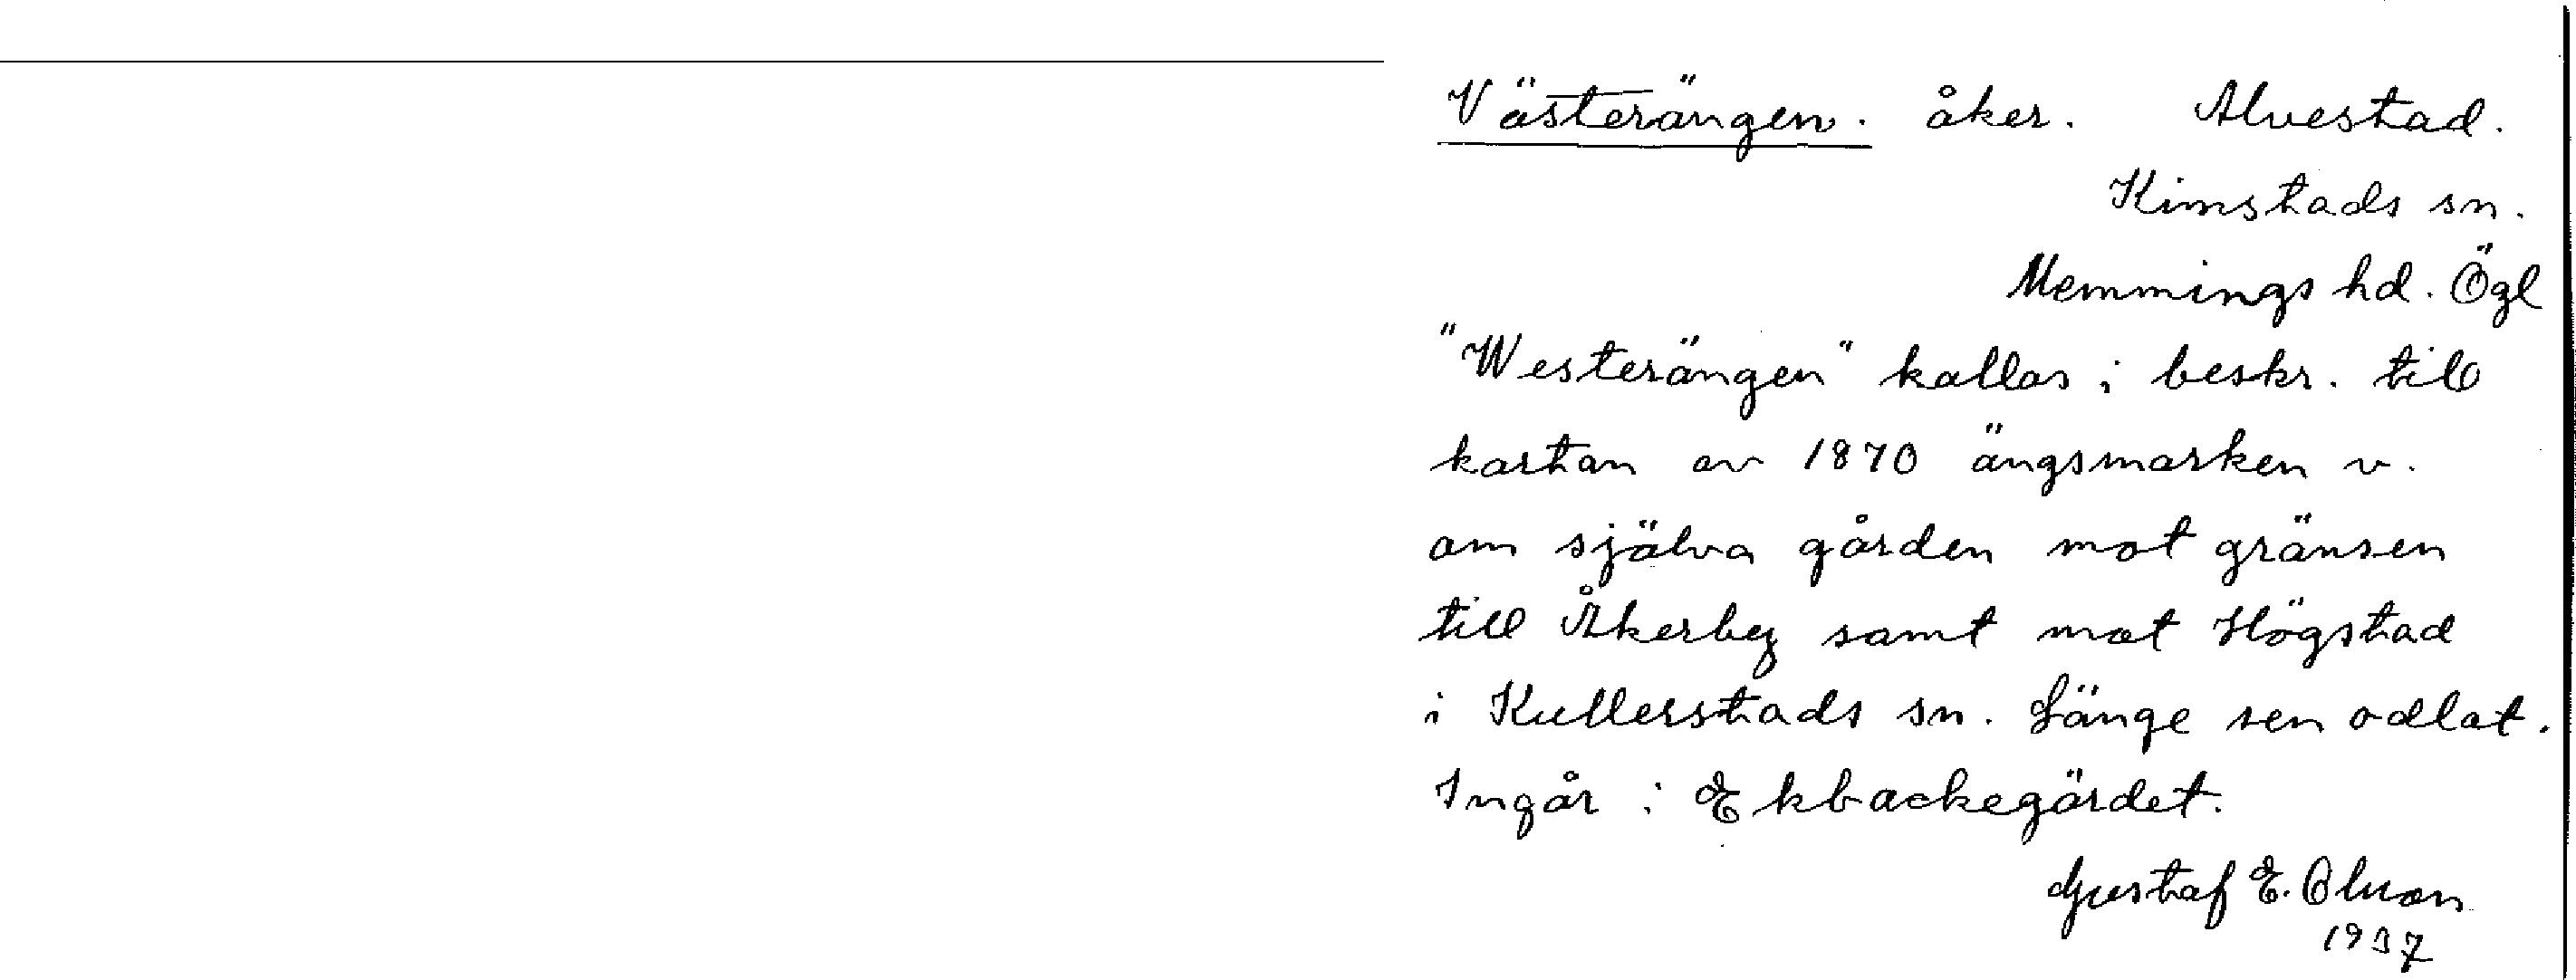 Västerängen. åker. Alvestad.
Kimstads sn.
Memmings hd. Ögl
"Westerängen" kallas i beskr. till
kartan av 1870 ängsmarken v.
om själva gården mot gränsen
till Åkerby samt mot Högstad
i Kullerstads sn. Länge sen odlat.
Ingår i Ekbackegärdet.
Gustaf E. Olson
1937